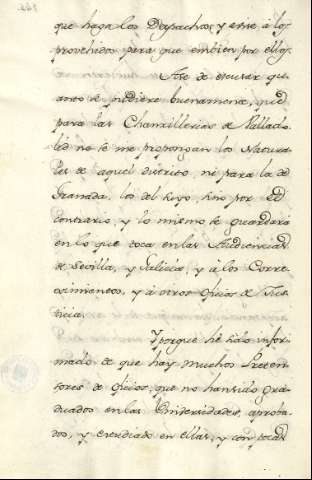 que haga los Despachos, y esse à los
provehidos para que embien por ellos.
Ase de escusar qu-
anto se pudiere buenamente, qued
para las Chanzillerias de Vallado-
lid no se me propongan los Natura-
les de aquel distrito, ni para la de
Granada, los del suyo, sino por el
contrario, y lo mismo se guardará
en lo que toca en las Audiencias
de Sevilla, y Galicia, y à los Corre-
ximientos, y à otros oficios de Jus-
ticia.
Y porque hè sido infor-
mado de que hay muchos Preten-
sores de oficios, que no han sido gra-
duados en las Universidades, aproba-
dos, y estudiado en ellas, y con pocas